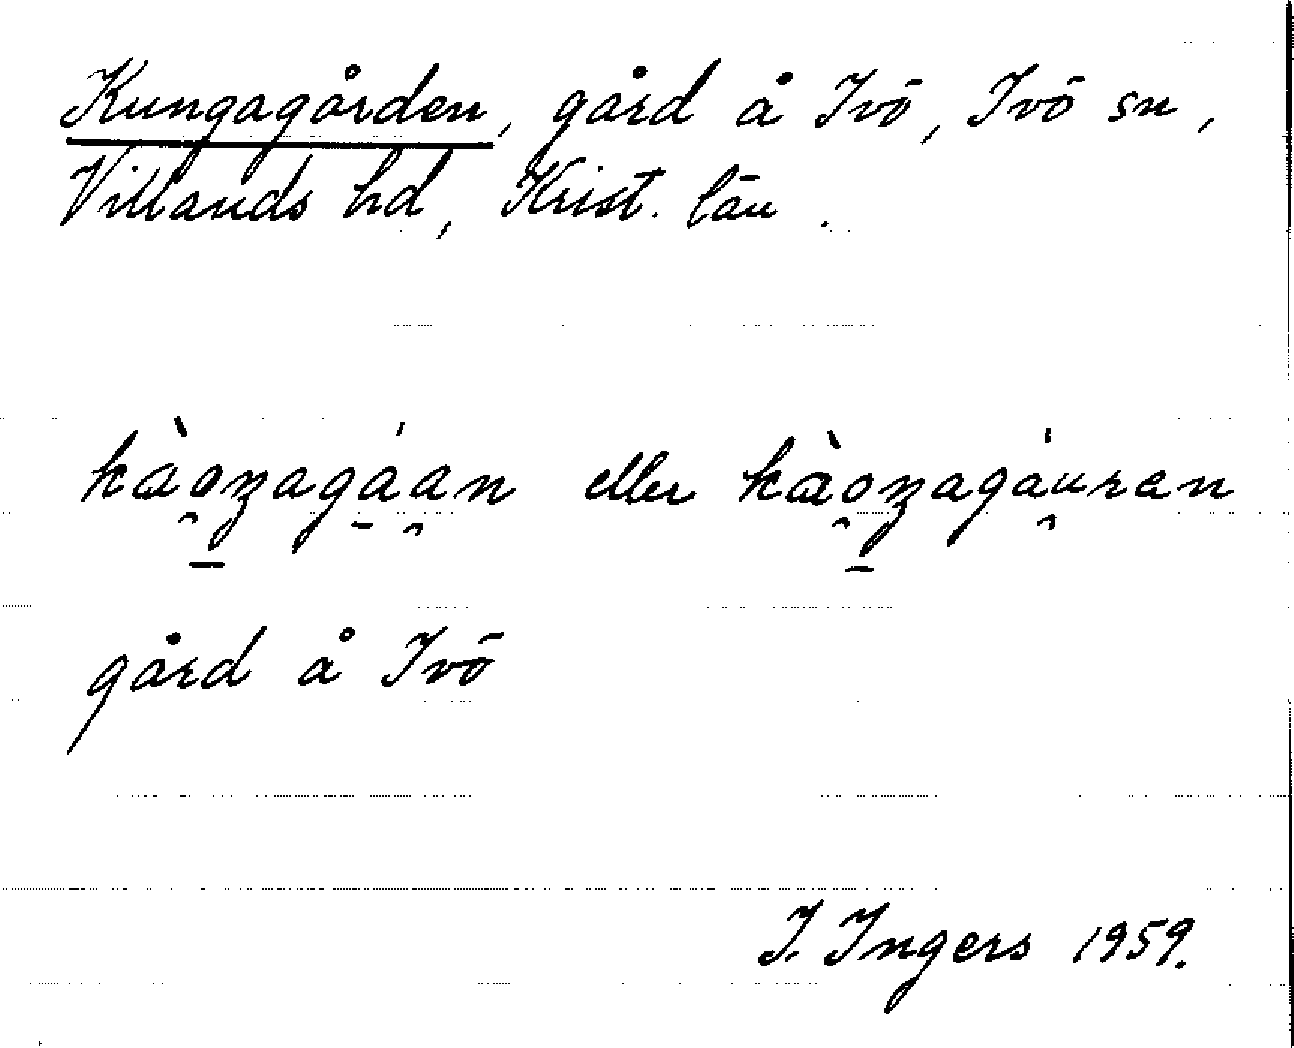 Kungagården, gård å Ivö, Ivö sn,
Villands hd, Krist. län.
kào̯ŋagá̠a̯n eller kào̯ŋagáu̯ran
gård å Ivö
I. Ingers 1959.